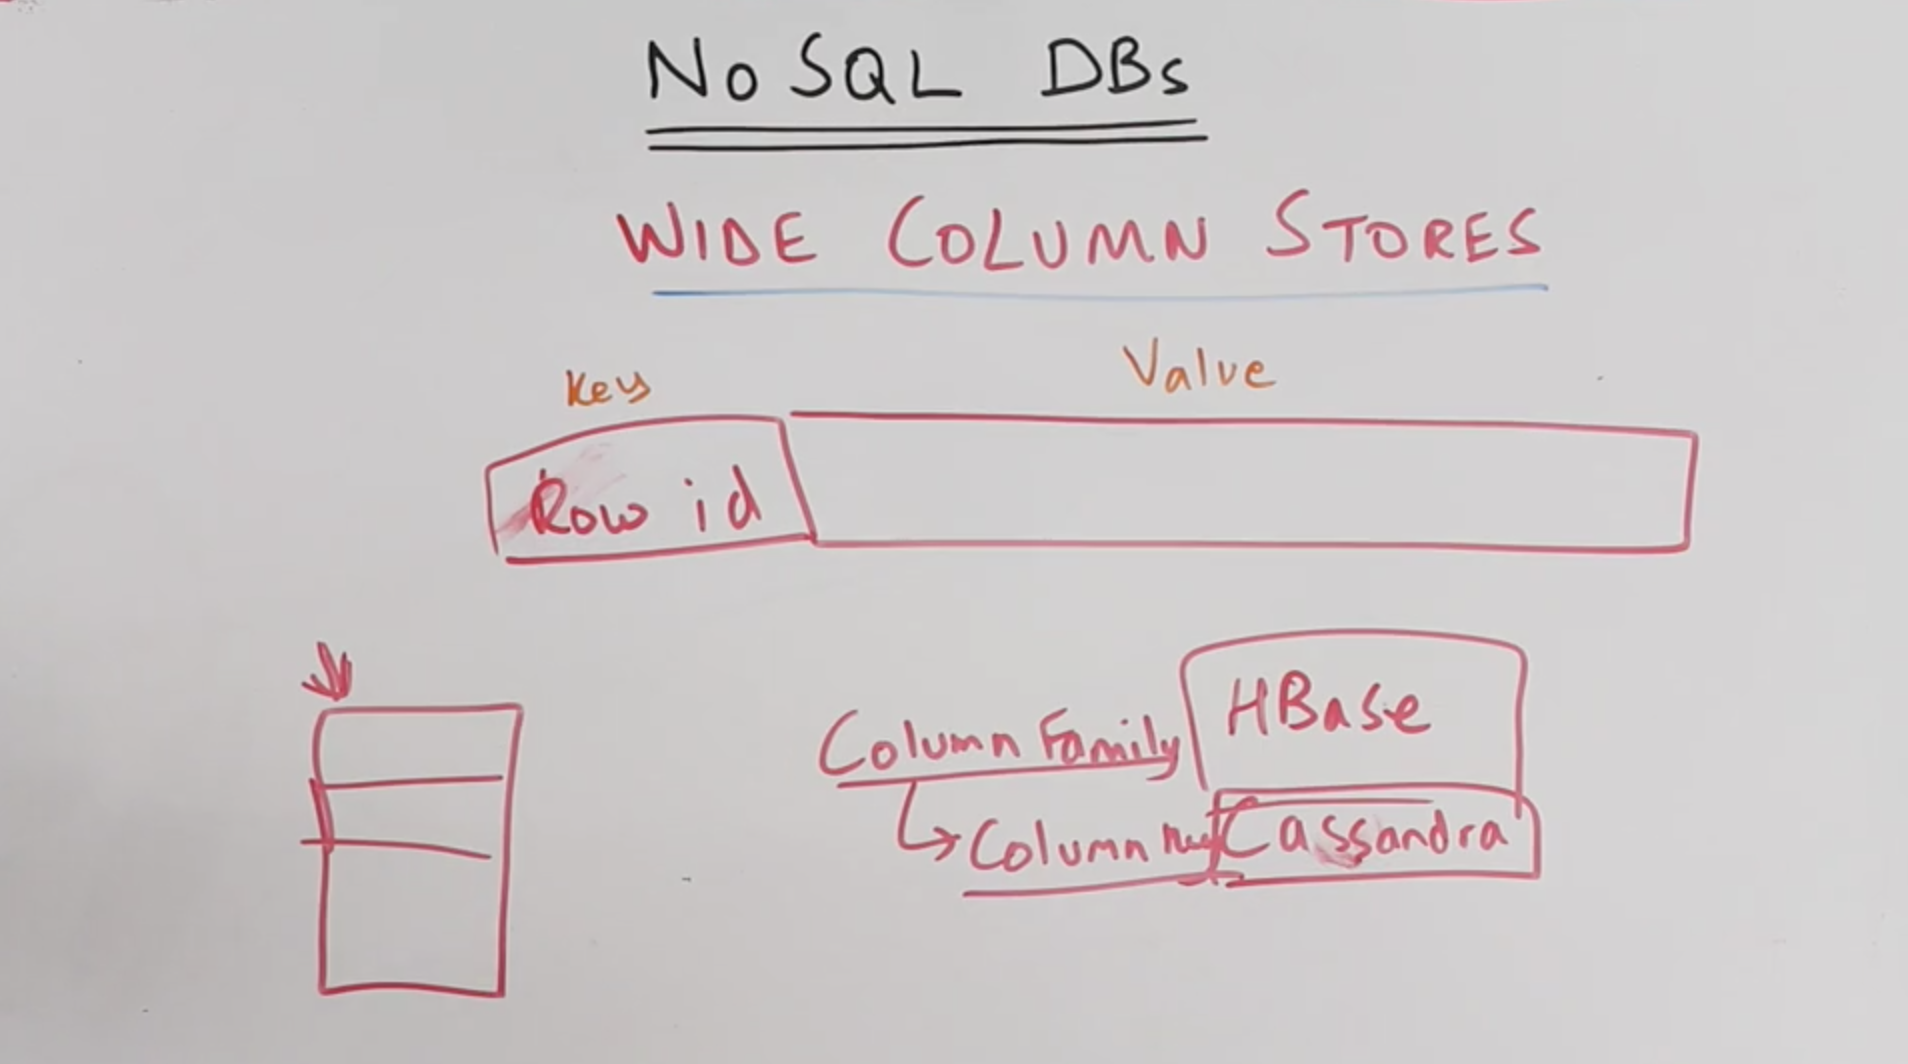 No SQL DBs
WIDE COLUMN STORES
Key Value
Row id
HBase
Column Family
Column Key Cassandra